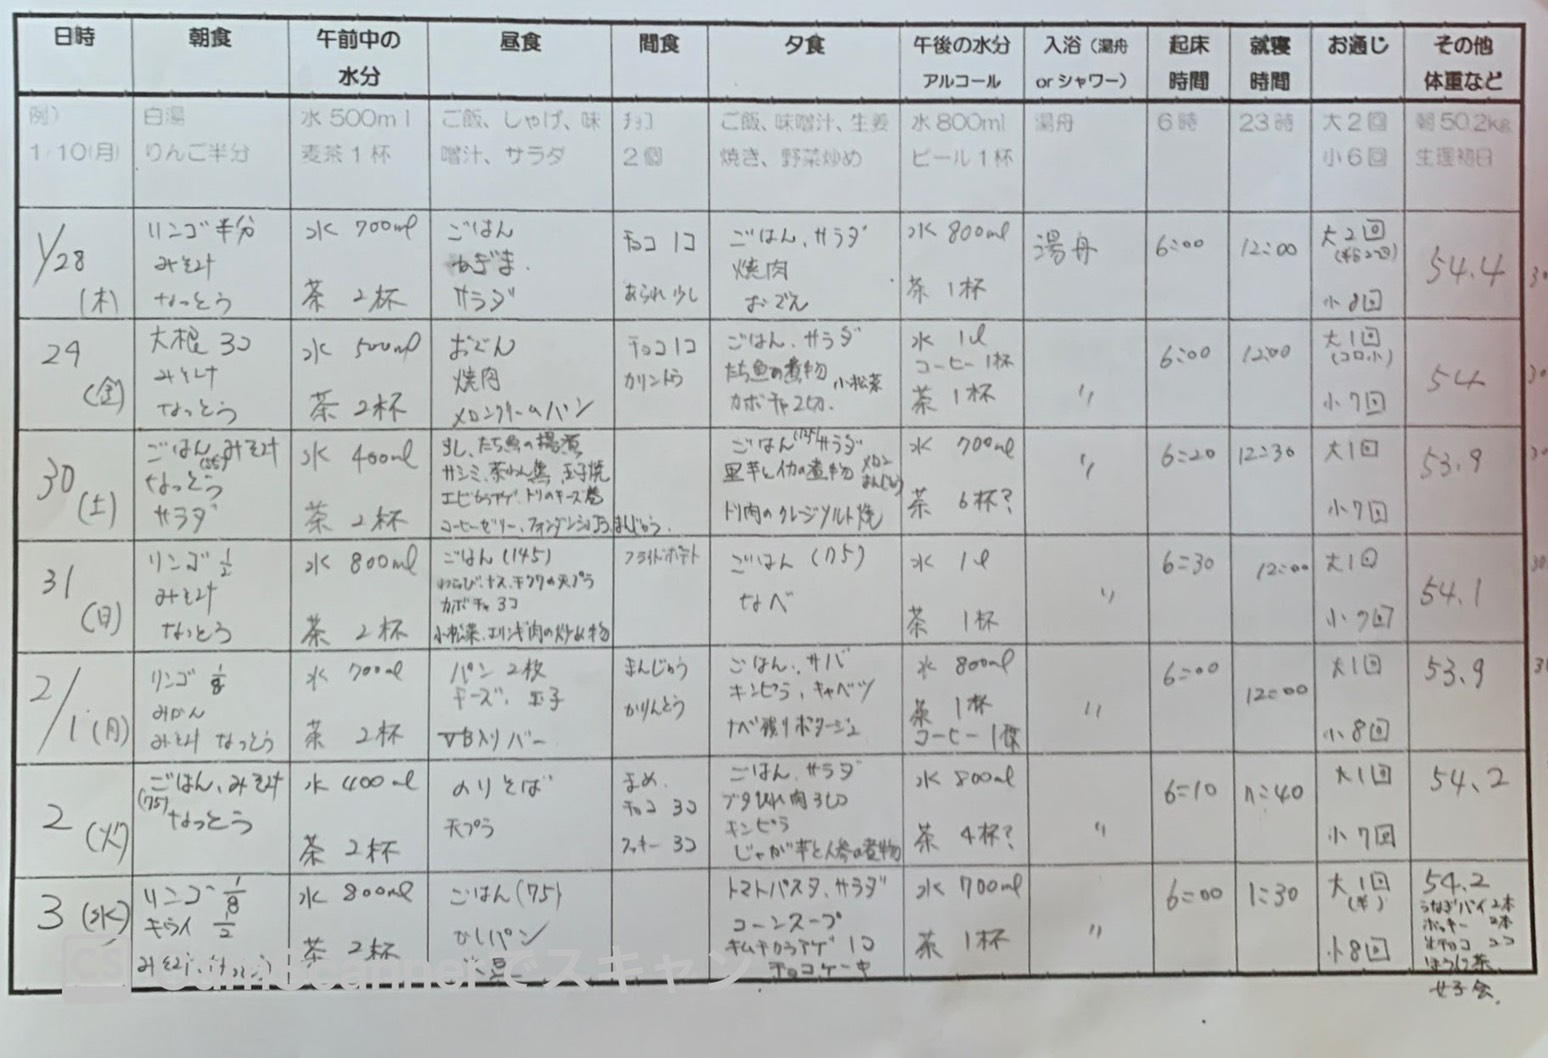 日時 朝食 午前中の水分 昼食 間食 夕食 午後の水分アルコール 入浴（湯舟orシャワー） 起床時間 就寝時間 お通じ その他体重など
例）1/10(月) 白湯 りんご半分 水500ml 麦茶1杯 ご飯、しゃけ、味噌汁、サラダ チョコ2個 ご飯、味噌汁、生姜焼き、野菜炒め 水800ml ビール1杯 湯舟 6時 23時 大2回 小6回 朝50.2kg 生理初日
1/28(木) リンゴ半分 みそ汁 なっとう 水 700ml 茶 2杯 ごはん ねぎま サラダ チョコ 1コ あられ 少し ごはん、サラダ 焼肉 おでん 水 800ml 茶 1杯 湯舟 6:00 12:00 大2回 小8回 54.4
29(金) 大根 3コ みそ汁 なっとう 水 500ml 茶 2杯 おでん 焼肉 メロンクリームパン チョコ1コ カリントウ ごはん、サラダ たち魚の煮物 小松菜 カボチャ2切 水 1l コーヒー 1杯 茶 1杯 〃 6:00 12:00 大1回 (コロ小) 小7回 54
30(土) ごはん、みそ汁 なっとう サラダ 水 400ml 茶 2杯 すし、たち魚の揚煮 サシミ、茶わん蒸、玉子焼 エビからアゲ、トリのチーズ巻 コーヒーゼリー、フォンダンショコラ まんじゅう ごはん(75) サラダ 里芋とイカの煮物 メロン まんじゅう トリ肉のクレイジソルト焼 水 700ml 茶 6杯? 〃 6:20 12:30 大1回 小7回 53.9
31(日) リンゴ 1/2 みそ汁 なっとう 水 800ml 茶 2杯 ごはん(145) わらび、ナス、チクワの天プラ カボチャ 3コ 小松菜、エリンギ肉の炒め物 フライドポテト ごはん (75) なべ 水 1l 茶 1杯 〃 6:30 12:00 大1回 小7回 54.1
2/1(月) リンゴ 1/8 みかん みそ汁 なっとう 水 700ml 茶 2杯 パン 2枚 チーズ、玉子 入りバー まんじゅう かりんとう ごはん、サバ キンピラ、キャベツ ナベ残りポタージュ 水 800ml 茶 1杯 コーヒー 1杯 〃 6:00 12:00 大1回 小8回 53.9
2(火) ごはん、みそ汁 (75) なっとう 水 400ml 茶 2杯 のりそば 天プラ まめ、チョコ 3コ クッキー 3コ ごはん、サラダ ブタひれ肉 キンピラ じゃが芋と人参の煮物 水 800ml 茶 4杯? 〃 6:10 11:40 大1回 小7回 54.2
3(水) リンゴ 1/8 キウイ 1/2 みそ汁、なっとう 水 800ml 茶 2杯 ごはん(75) むしパン トマトパスタ、サラダ コーンスープ キムチカラアゲ 1コ チョコケーキ 水 700ml 茶 1杯 〃 6:00 1:30 大1回 小8回 54.2 うなぎパイ 2本 ポッキー 2本 生チョコ 2コ ほうじ茶 女子会
CS CamScannerでスキャン